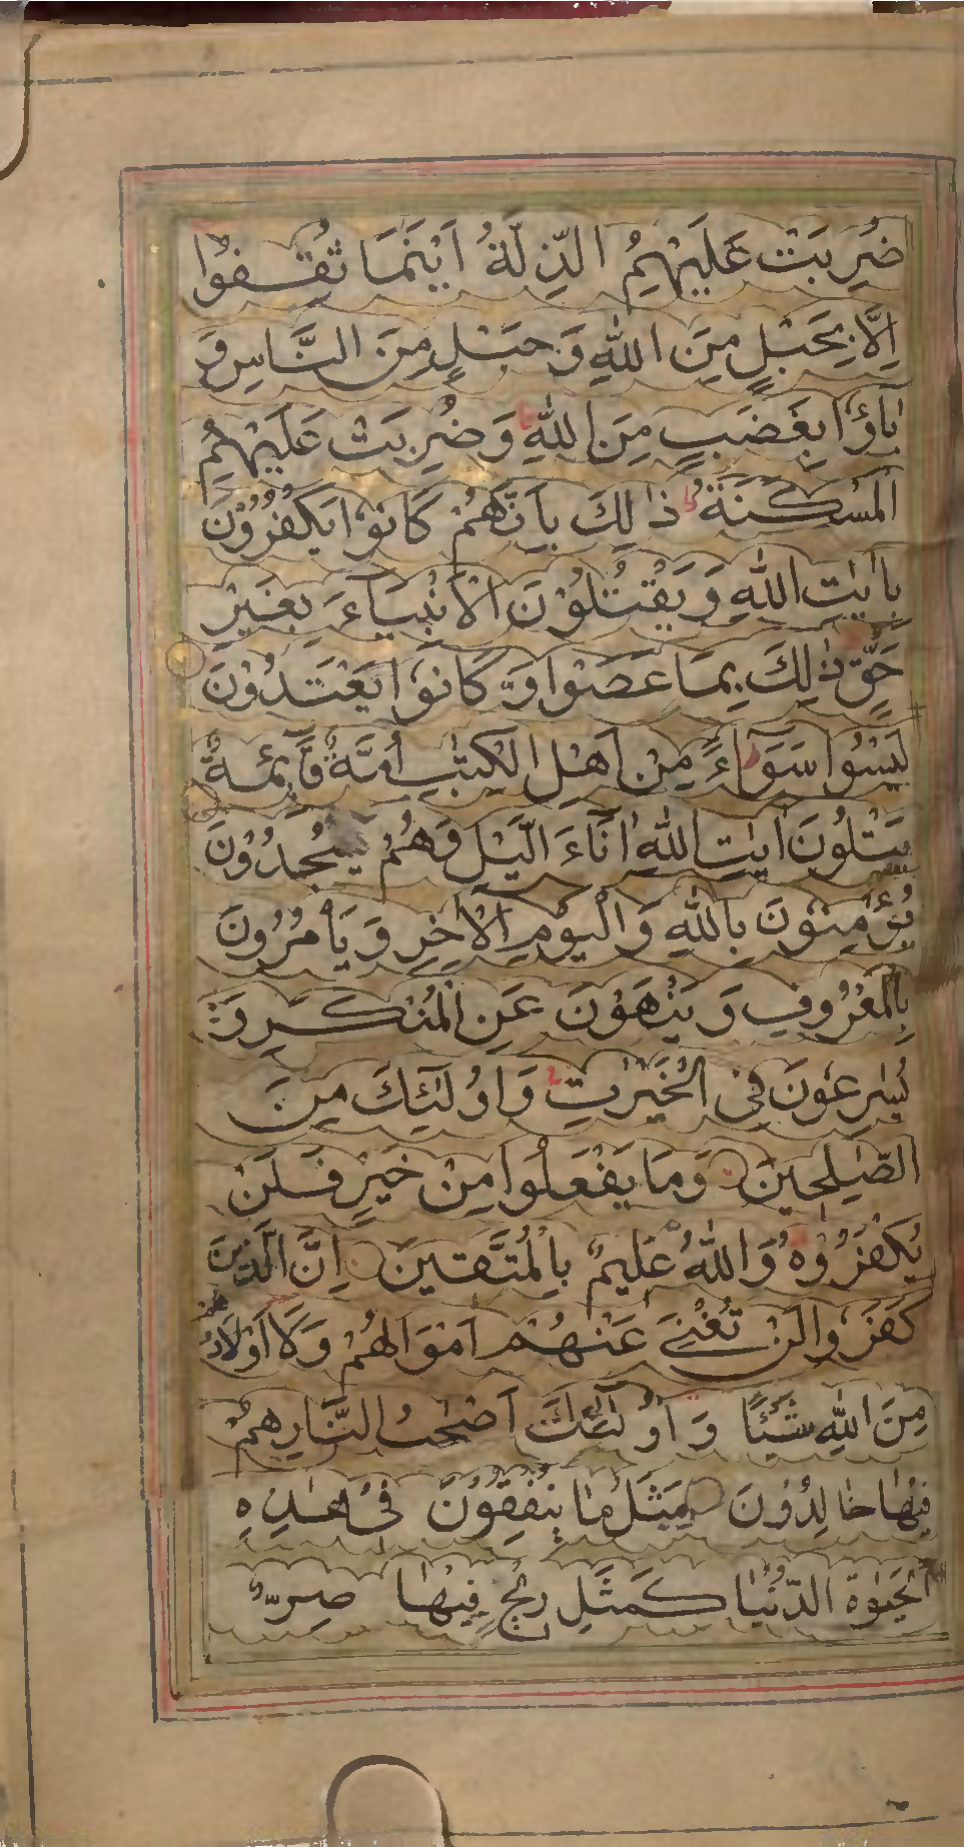 ضُرِبَتْ عَلَيْهِمُ الذِّلَّةُ اَيْنَمَا ثُقِفُوْا
اِلَّا بِحَبْلٍ مِنَ اللّٰهِ وَ حَبْلٍ مِنَ النَّاسِ وَ
بَآؤُا بِغَضَبٍ مِنَ اللّٰهِ وَ ضُرِبَتْ عَلَيْهِمُ
الْمَسْكَنَةُ ذٰلِكَ بِاَنَّهُمْ كَانُوْا يَكْفُرُوْنَ
بِاٰيٰتِ اللّٰهِ وَ يَقْتُلُوْنَ الْاَنْبِيَآءَ بِغَيْرِ
حَقٍّ ذٰلِكَ بِمَا عَصَوْا وَ كَانُوْا يَعْتَدُوْنَ
لَيْسُوْا سَوَآءً مِنْ اَهْلِ الْكِتٰبِ اُمَّةٌ قَآئِمَةٌ
يَتْلُوْنَ اٰيٰتِ اللّٰهِ اٰنَآءَ الَّيْلِ وَهُمْ يَسْجُدُوْنَ
يُؤْمِنُوْنَ بِاللّٰهِ وَالْيَوْمِ الْاٰخِرِ وَ يَأْمُرُوْنَ
بِالْمَعْرُوْفِ وَ يَنْهَوْنَ عَنِ الْمُنْكَرِ وَ
يُسٰرِعُوْنَ فِى الْخَيْرٰتِ وَ اُولٰٓئِكَ مِنَ
الصّٰلِحِيْنَ وَمَا يَفْعَلُوْا مِنْ خَيْرٍ فَلَنْ
يُكْفَرُوْهُ وَاللّٰهُ عَلِيْمٌ بِالْمُتَّقِيْنَ اِنَّ الَّذِيْنَ
كَفَرُوْا لَنْ تُغْنِىَ عَنْهُمْ اَمْوَالُهُمْ وَلَا اَوْلَادُهُمْ
مِنَ اللّٰهِ شَيْئًا وَ اُولٰٓئِكَ اَصْحٰبُ النَّارِ هُمْ
فِيْهَا خَالِدُوْنَ مَثَلُ مَا يُنْفِقُوْنَ فِىْ هٰذِهِ
الْحَيٰوةِ الدُّنْيَا كَمَثَلِ رِيْحٍ فِيْهَا صِرٌّ